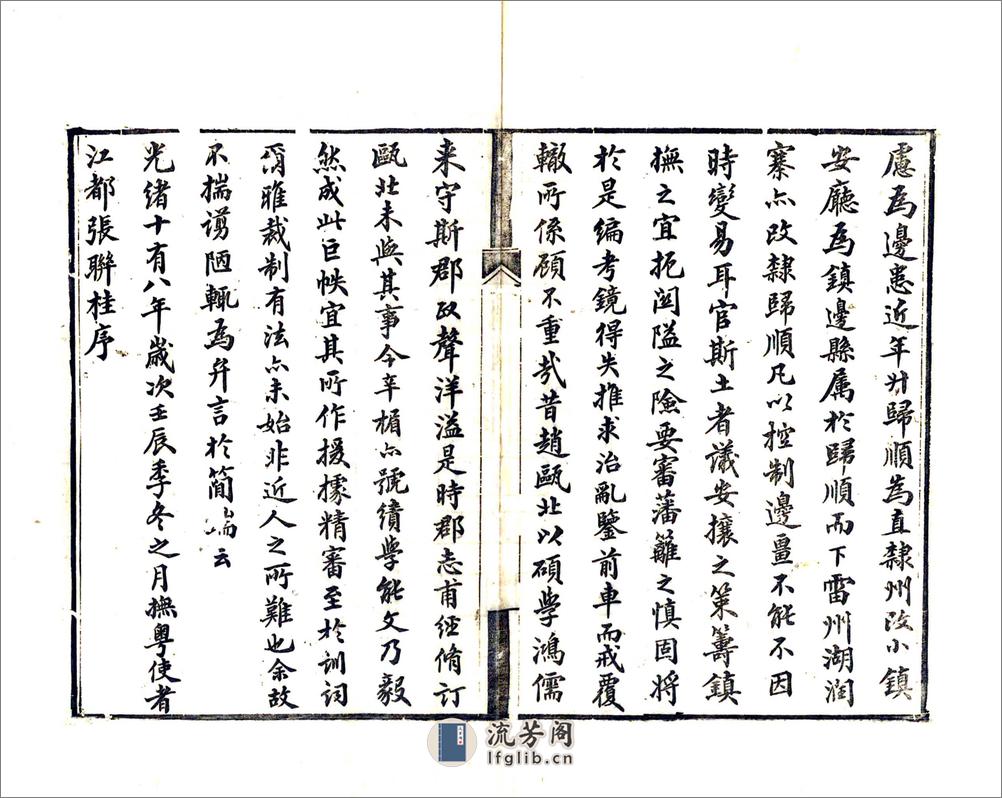 慮為邊患近年升歸順為直隸州改小鎮
安廳為鎮邊縣属於歸順而下雷州湖潤
寨亦改隸歸順凡以控制邊疆不能不因
時變易耳官斯土者議安攘之策籌鎮
撫之宜扼関隘之險要審藩籬之慎固將
於是編考鏡得失推求治亂鑒前車而戒覆
轍所係顧不重哉昔趙甌北以碩學鴻儒
来守斯郡政聲洋溢是時郡志甫經脩訂
甌北未與其事今辛楣亦號績學能文乃毅
然成此巨帙宜其所作援據精審至於訓詞
爾雅裁制有法亦未始非近人之所難也余故
不揣謭陋輒為弁言於簡端云
光緒十有八年歲次壬辰季冬之月撫粵使者
江都張聯桂序
流芳阁
lfglib.cn